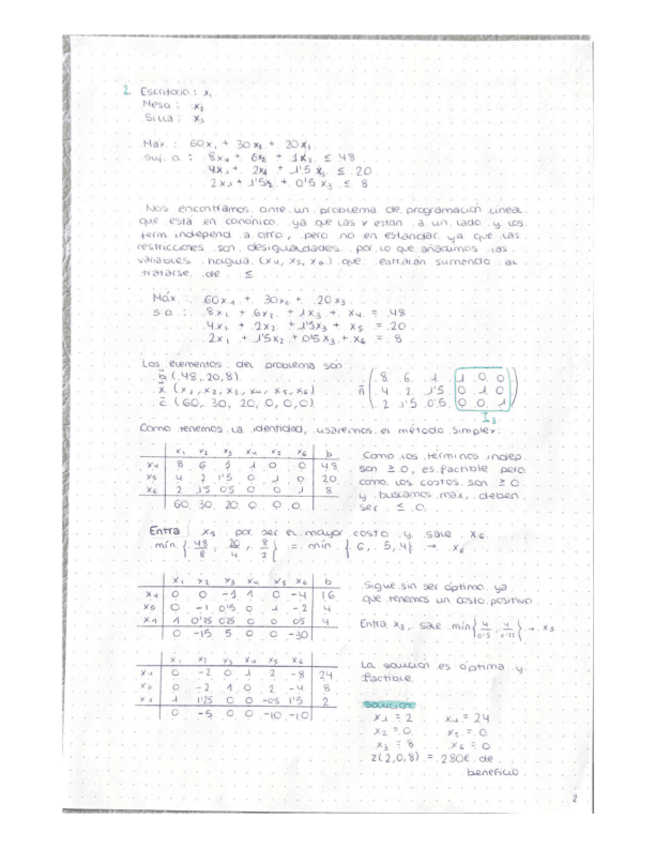 2. Escritorio: x₁
Mesa: x₂
Silla: x₃
Máx: 60x₁ + 30x₂ + 20x₃
Suj. a: 8x₁ + 6x₂ + 1x₃ ≤ 48
4x₁ + 2x₂ + 1'5x₃ ≤ 20
2x₁ + 1'5x₂ + 0'5x₃ ≤ 8
Nos encontramos ante un problema de programación lineal
que está en canónico ya que las x están a un lado y los
term independ a otro, pero no en estandar ya que las
restricciones son desigualdades por lo que añadimos las
variables holgura (x₄, x₅, x₆) que entrarán sumando al
tratarse de ≤
Máx: 60x₁ + 30x₂ + 20x₃
s.a.: 8x₁ + 6x₂ + 1x₃ + x₄ = 48
4x₁ + 2x₂ + 1'5x₃ + x₅ = 20
2x₁ + 1'5x₂ + 0'5x₃ + x₆ = 8
Los elementos del problema son
b (48, 20, 8)
x (x₁, x₂, x₃, x₄, x₅, x₆)
c (60, 30, 20, 0, 0, 0)
A
8 6 1 1 0 0
4 2 1'5 0 1 0
2 1'5 0'5 0 0 1
I₃
Como tenemos la identidad, usaremos el método simplex:
x₁ x₂ x₃ x₄ x₅ x₆ b
x₄ 8 6 1 1 0 0 48
x₅ 4 2 1'5 0 1 0 20
x₆ 2 1'5 0'5 0 0 1 8
60 30 20 0 0 0
Como los términos indep.
son ≥ 0, es factible pero
como los costos son ≥ 0
y buscamos max, deben
ser ≤ 0
Entra x₁ por ser el mayor costo y sale x₆
mín {48/8, 20/4, 8/2} = mín {6, 5, 4} → x₆
x₁ x₂ x₃ x₄ x₅ x₆ b
x₄ 0 0 -1 1 0 -4 16
x₅ 0 -1 0'5 0 1 -2 4
x₁ 1 0'75 0'25 0 0 0'5 4
0 -15 5 0 0 -30
Sigue sin ser óptimo ya
que tenemos un costo positivo
Entra x₃, sale mín{4/0'5, 4/0'25} → x₅
x₁ x₂ x₃ x₄ x₅ x₆
x₄ 0 -2 0 1 2 -8 24
x₃ 0 -2 1 0 2 -4 8
x₁ 1 1'25 0 0 -0'5 1'5 2
0 -5 0 0 -10 -10
La solución es óptima y
factible
solución
x₁ = 2 x₄ = 24
x₂ = 0 x₅ = 0
x₃ = 8 x₆ = 0
z(2,0,8) = 280€ de
beneficio
2